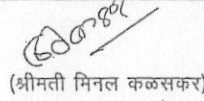 (श्रीमती मिनल कळसकर)